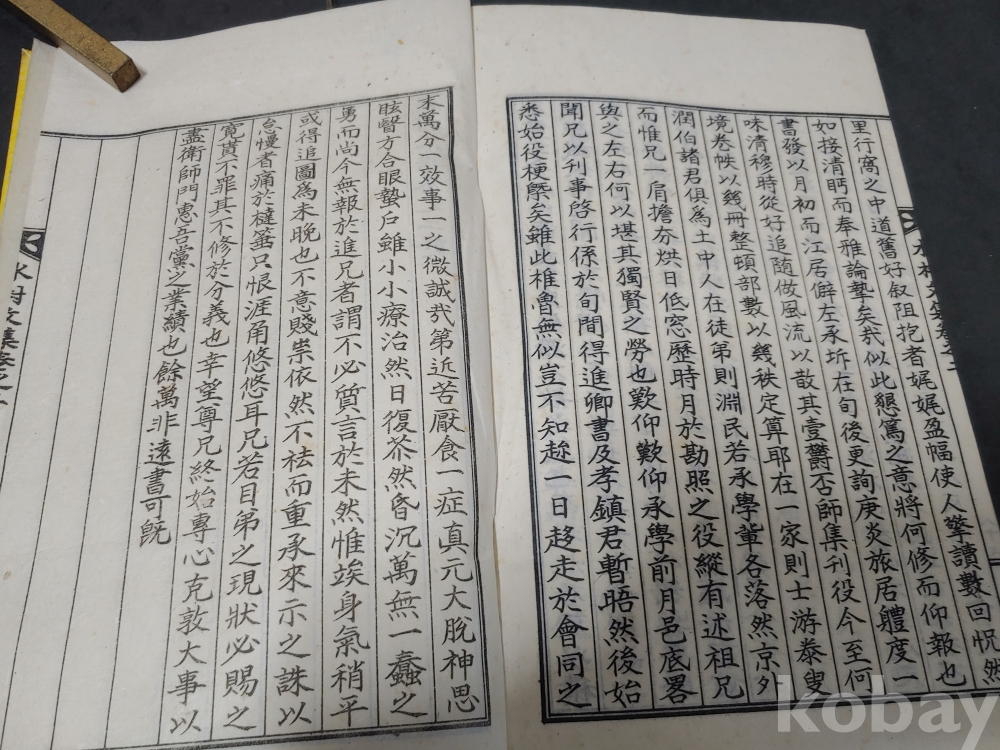 里行窩之中道舊好叙阻抱者娓娓盈幅使人擎讀數回怳然
如接清眄而奉雅論摯矣哉似此懇篤之意將何修而仰報也
書發以月初而江居僻左承坼在旬後更詢庚炎旅居軆度一
味清穆時從好追隨倣風流以敨其壹欝否師集刊役今至何
境卷帙以幾冊整頓部數以幾秩定算耶在一家則士游泰叟
潤伯諸君俱爲土中人在徒弟則淵民若承學輩各落然京外
而惟兄一肩擔夯烘日低窓歷時月於勘照之役縱有述祖兄
與之左右何以堪其獨賢之勞也歎仰歎仰承學前月邑底畧
聞兄以刊事啓行係於旬間得進卿書及孝鎮君暫晤然後始
悉始役梗槩矣雖此椎魯無似豈不知趁一日趍走於會同之
末萬分一效事一之微誠哉弟近苦厭食一症真元大脫神思
眩瞖方合眼蟄戶雖小小療治然日復苶然昏沉萬無一蠢之
勇而尚今無報於進兄者謂不必質言於未然惟竢身氣稍平
或得追圖爲未晚也不意賤祟依然不祛而重承來示之誅以
怠慢者痛於撻箠只恨涯角悠悠耳兄若目弟之現狀必賜之
寬貰不罪其不修於分義也幸望尊兄終始專心克敦大事以
盡衛師門惠吾黨之業績也餘萬非遠書可旣
kobay